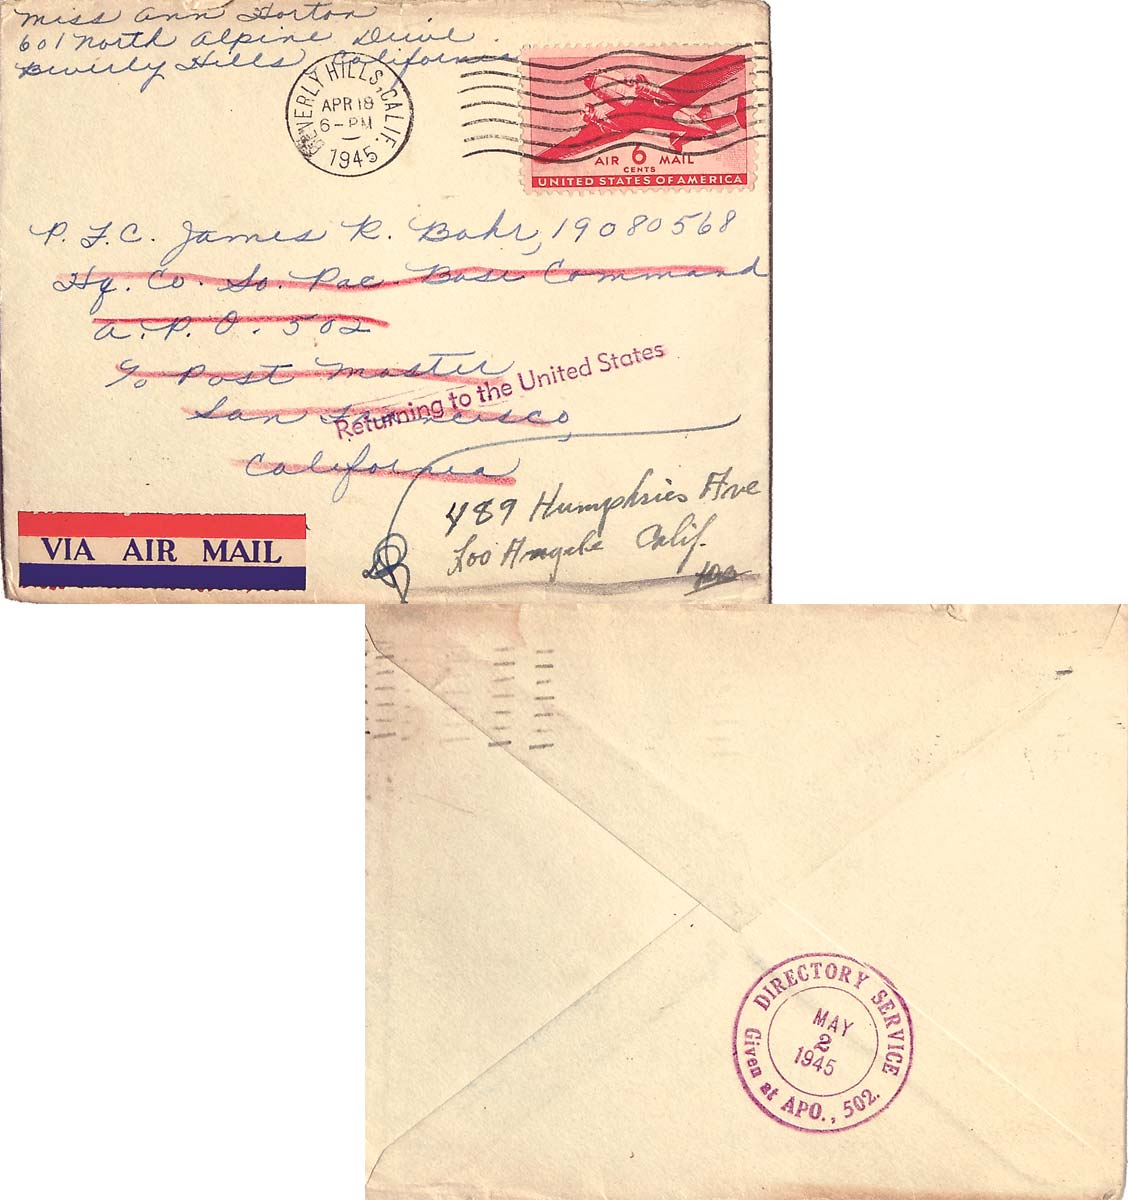 Miss Ann Horton
601 North Alpine Drive.
Beverly Hills, California
BEVERLY HILLS, CALIF.
APR 18
6-PM
1945
AIR 6 MAIL
CENTS
UNITED STATES OF AMERICA
P.F.C. James R. Bohr, 19080568
Hq. Co. So. Pac. Base Command
A.P.O. 502
c/o Post Master
San Francisco,
California
Returning to the United States
489 Humphries Ave
Los Angeles Calif.
VIA AIR MAIL
DIRECTORY SERVICE
MAY
2
1945
Given at APO., 502.